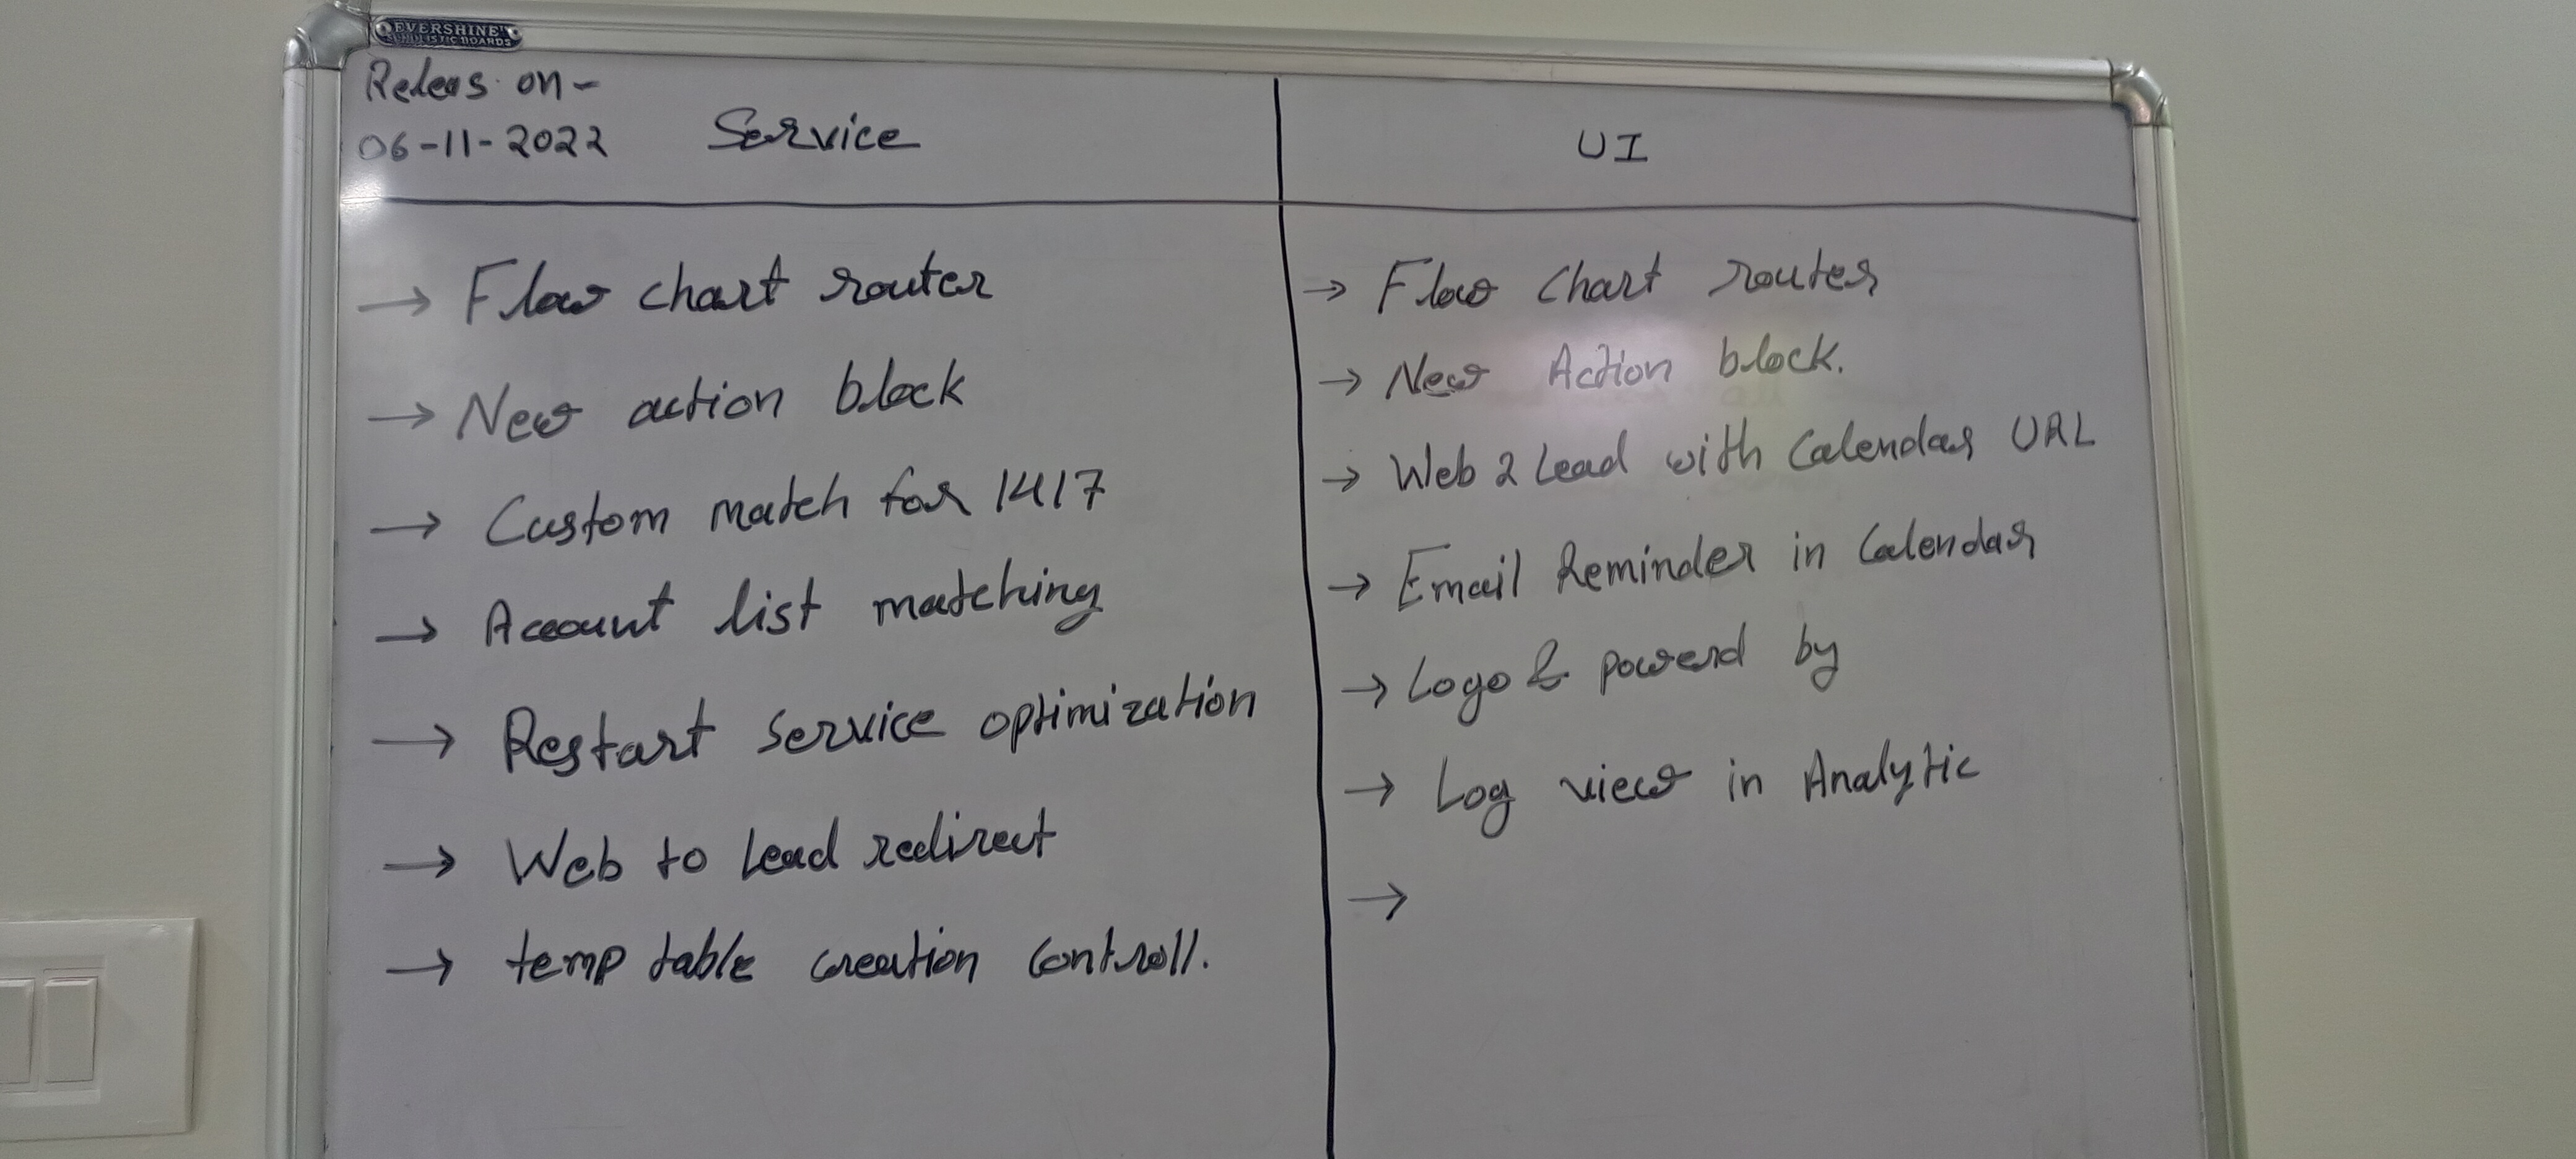 EVERSHINE
Releas on -
06-11-2022
Service
→ Flow chart router
→ New action block
→ Custom match for 1417
→ Account list matching
→ Restart service optimization
→ Web to Lead redirect
→ temp table creation controll.
UI
→ Flow Chart router
→ New Action block.
→ Web 2 Lead with Calendar URL
→ Email Reminder in Calendar
→ Logo & powerd by
→ Log view in Analytic
→